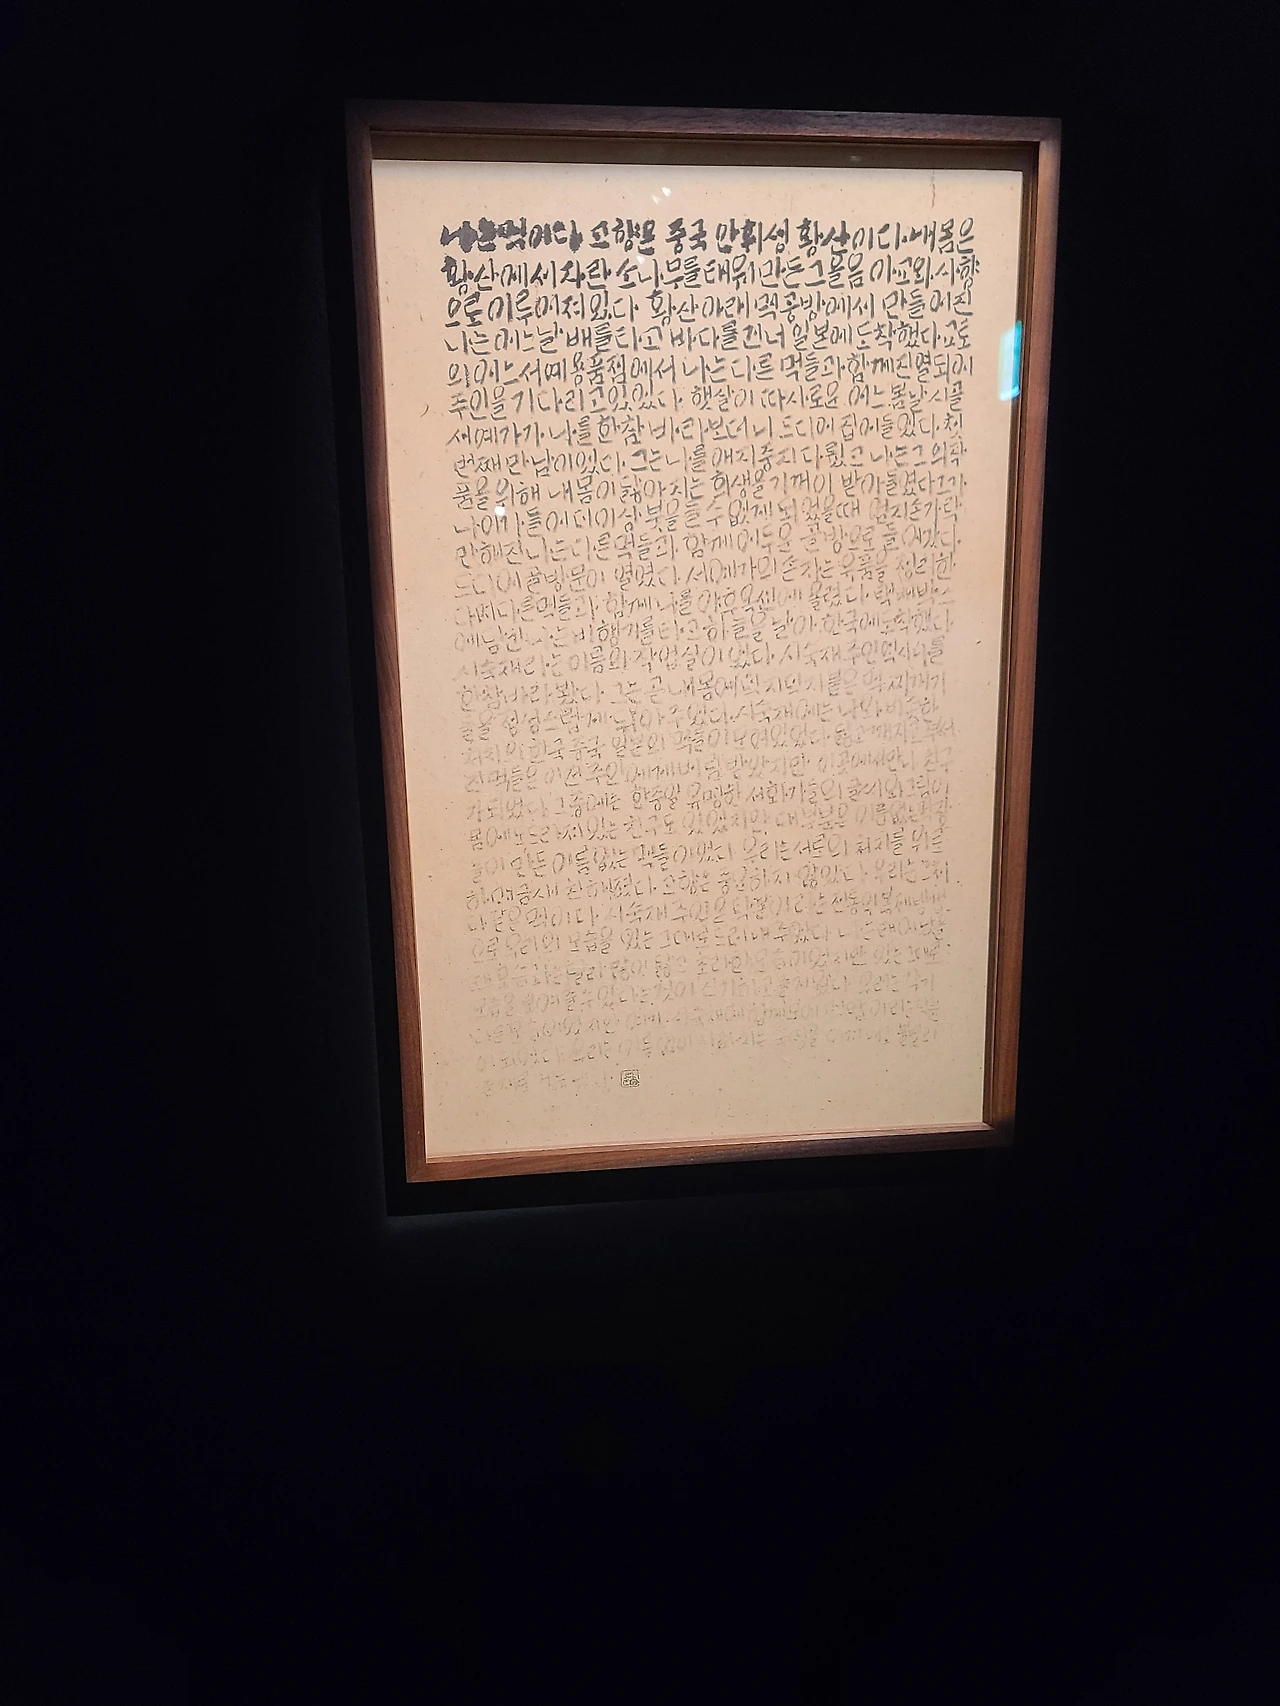 나는 먹이다 고향은 중국 안휘성 황산이다. 내 몸은
황산에서 자란 소나무를 태워 만든 그을음 아교와 사향
으로 이루어져 있다 황산 아래 먹공방에서 만들어진
나는 어느날 배를 타고 바다를 건너 일본에 도착했다. 교토
의 어느 서예용품점에서 나는 다른 먹들과 함께 진열되어
주인을 기다리고 있었다. 햇살이 따사로운 어느 봄날 시골
서예가가 나를 한참 바라보더니 드디어 집어들었다. 첫
번째 만남이었다. 그는 나를 애지중지 다뤘고 나는 그의 작
품을 위해 내 몸이 닳아지는 희생을 기꺼이 받아들였다 그가
나이가 들어 더이상 붓을 들 수 없게 되었을 때 엄지손가락
만해진 나는 다른 먹들과 함께 어두운 골방으로 들어갔다.
드디어 골방문이 열렸다. 서예가의 손자는 유품을 정리한
다며 다른 먹들과 함께 나를 야후옥션에 올렸다. 택배박스
에 담긴 나는 비행기를 타고 하늘을 날아 한국에 도착했다.
시숙재라는 이름의 작업실이었다. 시숙재 주인 역시 나를
한참 바라봤다. 그는 곧 내 몸에 덕지덕지 붙은 먹 찌꺼기
들을 정성스럽게 닦아주었다. 시숙재에는 나와 비슷한
처지의 한국 중국 일본의 먹들이 모여있었다. 닳고 깨지고 부서
진 먹들은 이전 주인에게 버림받았지만 이곳에서 만나 친구
가 되었다 그중에는 한중일 유명한 서화가들의 글씨와 그림이
몸에 드러나 있는 친구도 있었지만 대부분은 이름없는 먹장
들이 만든 이름없는 먹들이었다 우리는 서로의 처지를 위로
하며 금세 친해졌다. 고향은 중요하지 않았다 우리는 그저
다 같은 먹이다 시숙재 주인은 탁본이라는 전통
으로 우리의 모습을 있는 그대로 드러내 주었다 나는
많이 닳고 초라한 모습이었지만 있는 그대로
모습을 보여줄 수 있다는 것이 신기하고